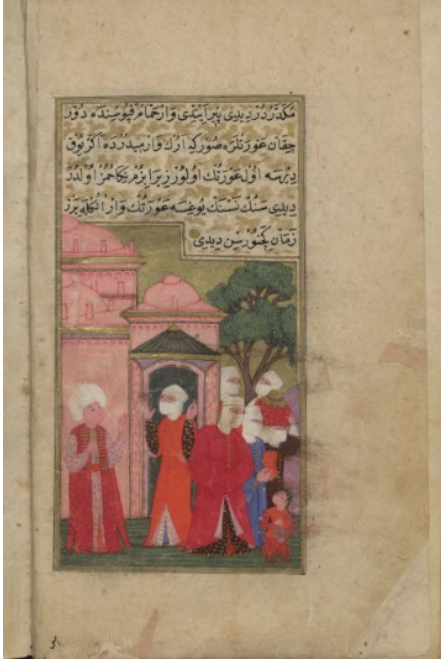 مكدر در ديدى پير ايتدى وار حمام قپوسنده دور
چقان عورتلره صور كه ارك وارميدر ده اكر يوق
ديرسه اول عورتك اولور زيرا بزم نكاحمز اولدر
ديدى سنك نسنك يوغسه عورتك وار انكله بر
زمان كچنورسن ديدى